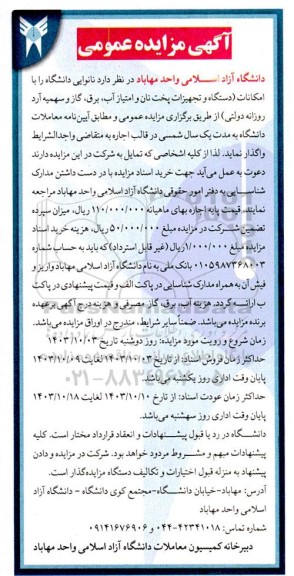 آگهی مزایده عمومی
دانشگاه آزاد اسلامی واحد مهاباد در نظر دارد نانوایی دانشگاه را با
امکانات (دستگاه و تجهیزات پخت نان و امتیاز آب، برق، گاز و سهمیه آرد
روزانه دولتی) از طریق برگزاری مزایده عمومی و مطابق آیین‌نامه معاملات
دانشگاه به مدت یک سال شمسی در قالب اجاره به متقاضی واجدالشرایط
واگذار نماید. لذا از کلیه اشخاصی که تمایل به شرکت در این مزایده دارند
دعوت به عمل می‌آید جهت خرید اسناد مزایده با در دست داشتن مدارک
شناسایی به دفتر امور حقوقی دانشگاه آزاد اسلامی واحد مهاباد مراجعه
نمایند. قیمت پایه اجاره بهای ماهیانه ۱۱۰/۰۰۰/۰۰۰ ریال، میزان سپرده
تضمین شرکت در مزایده مبلغ ۵۰/۰۰۰/۰۰۰ ریال، هزینه خرید اسناد
مزایده مبلغ ۱/۰۰۰/۰۰۰ ریال (غیر قابل استرداد) که باید به حساب شماره
۰۱۰۵۹۸۷۳۶۸۰۰۳ بانک ملی به نام دانشگاه آزاد اسلامی مهاباد واریز و
فیش آن به همراه مدارک شناسایی در پاکت الف و قیمت پیشنهادی در پاکت
ب ارائه گردد. هزینه آب، برق، گاز مصرفی و هزینه درج آگهی برعهده
برنده مزایده می‌باشد. ضمناً سایر شرایط، مندرج در اوراق مزایده می‌باشد.
زمان شروع و رویت مورد مزایده: روز دوشنبه تاریخ ۱۴۰۳/۱۰/۰۳
حداکثر زمان فروش اسناد: از تاریخ ۱۴۰۳/۱۰/۰۳ لغایت ۱۴۰۳/۱۰/۰۹
پایان وقت اداری روز یکشنبه می‌باشد.
حداکثر زمان عودت اسناد: از تاریخ ۱۴۰۳/۱۰/۱۰ لغایت ۱۴۰۳/۱۰/۱۸
پایان وقت اداری روز سه‌شنبه می‌باشد.
دانشگاه در رد یا قبول پیشنهادات و انعقاد قرارداد مختار است. کلیه
پیشنهادات مبهم و مشروط مردود خواهد بود. شرکت در مزایده و دادن
پیشنهاد به منزله قبول اختیارات و تکالیف دستگاه مزایده‌گذار است.
آدرس: مهاباد-خیابان دانشگاه-مجتمع کوی دانشگاه - دانشگاه آزاد
اسلامی واحد مهاباد
شماره تماس: ۴۲۳۴۱۰۱۸-۰۴۴ و ۰۹۱۴۱۶۷۶۹۰۶
دبیرخانه کمیسیون معاملات دانشگاه آزاد اسلامی واحد مهاباد